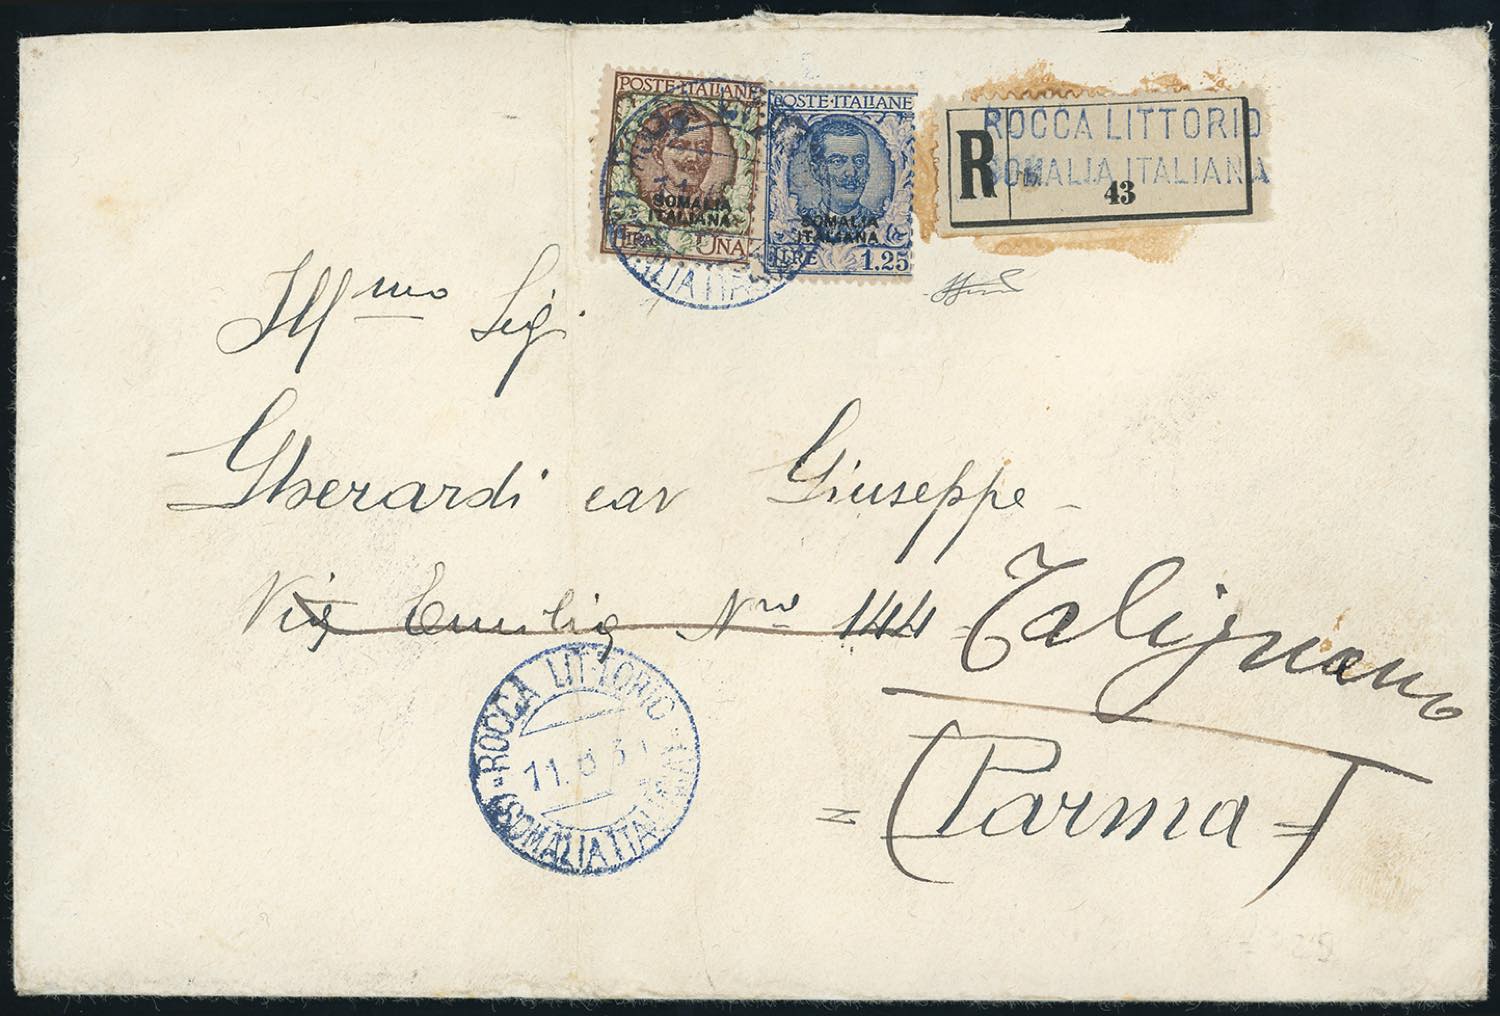 POSTE·ITALIANE
SOMALIA
ITALIANA
LIRA UNA
POSTE·ITALIANE
SOMALIA
ITALIANA
LIRE 1.25
R
ROCCA LITTORIO
SOMALIA ITALIANA
43
Ill^mo Sig.
Gherardi cav Giuseppe -
Via Emilia N^ro 144 - Talignano
= (Parma =)
-ROCCA LITTORIO-
11. 3
(SOMALIA ITALIANA)